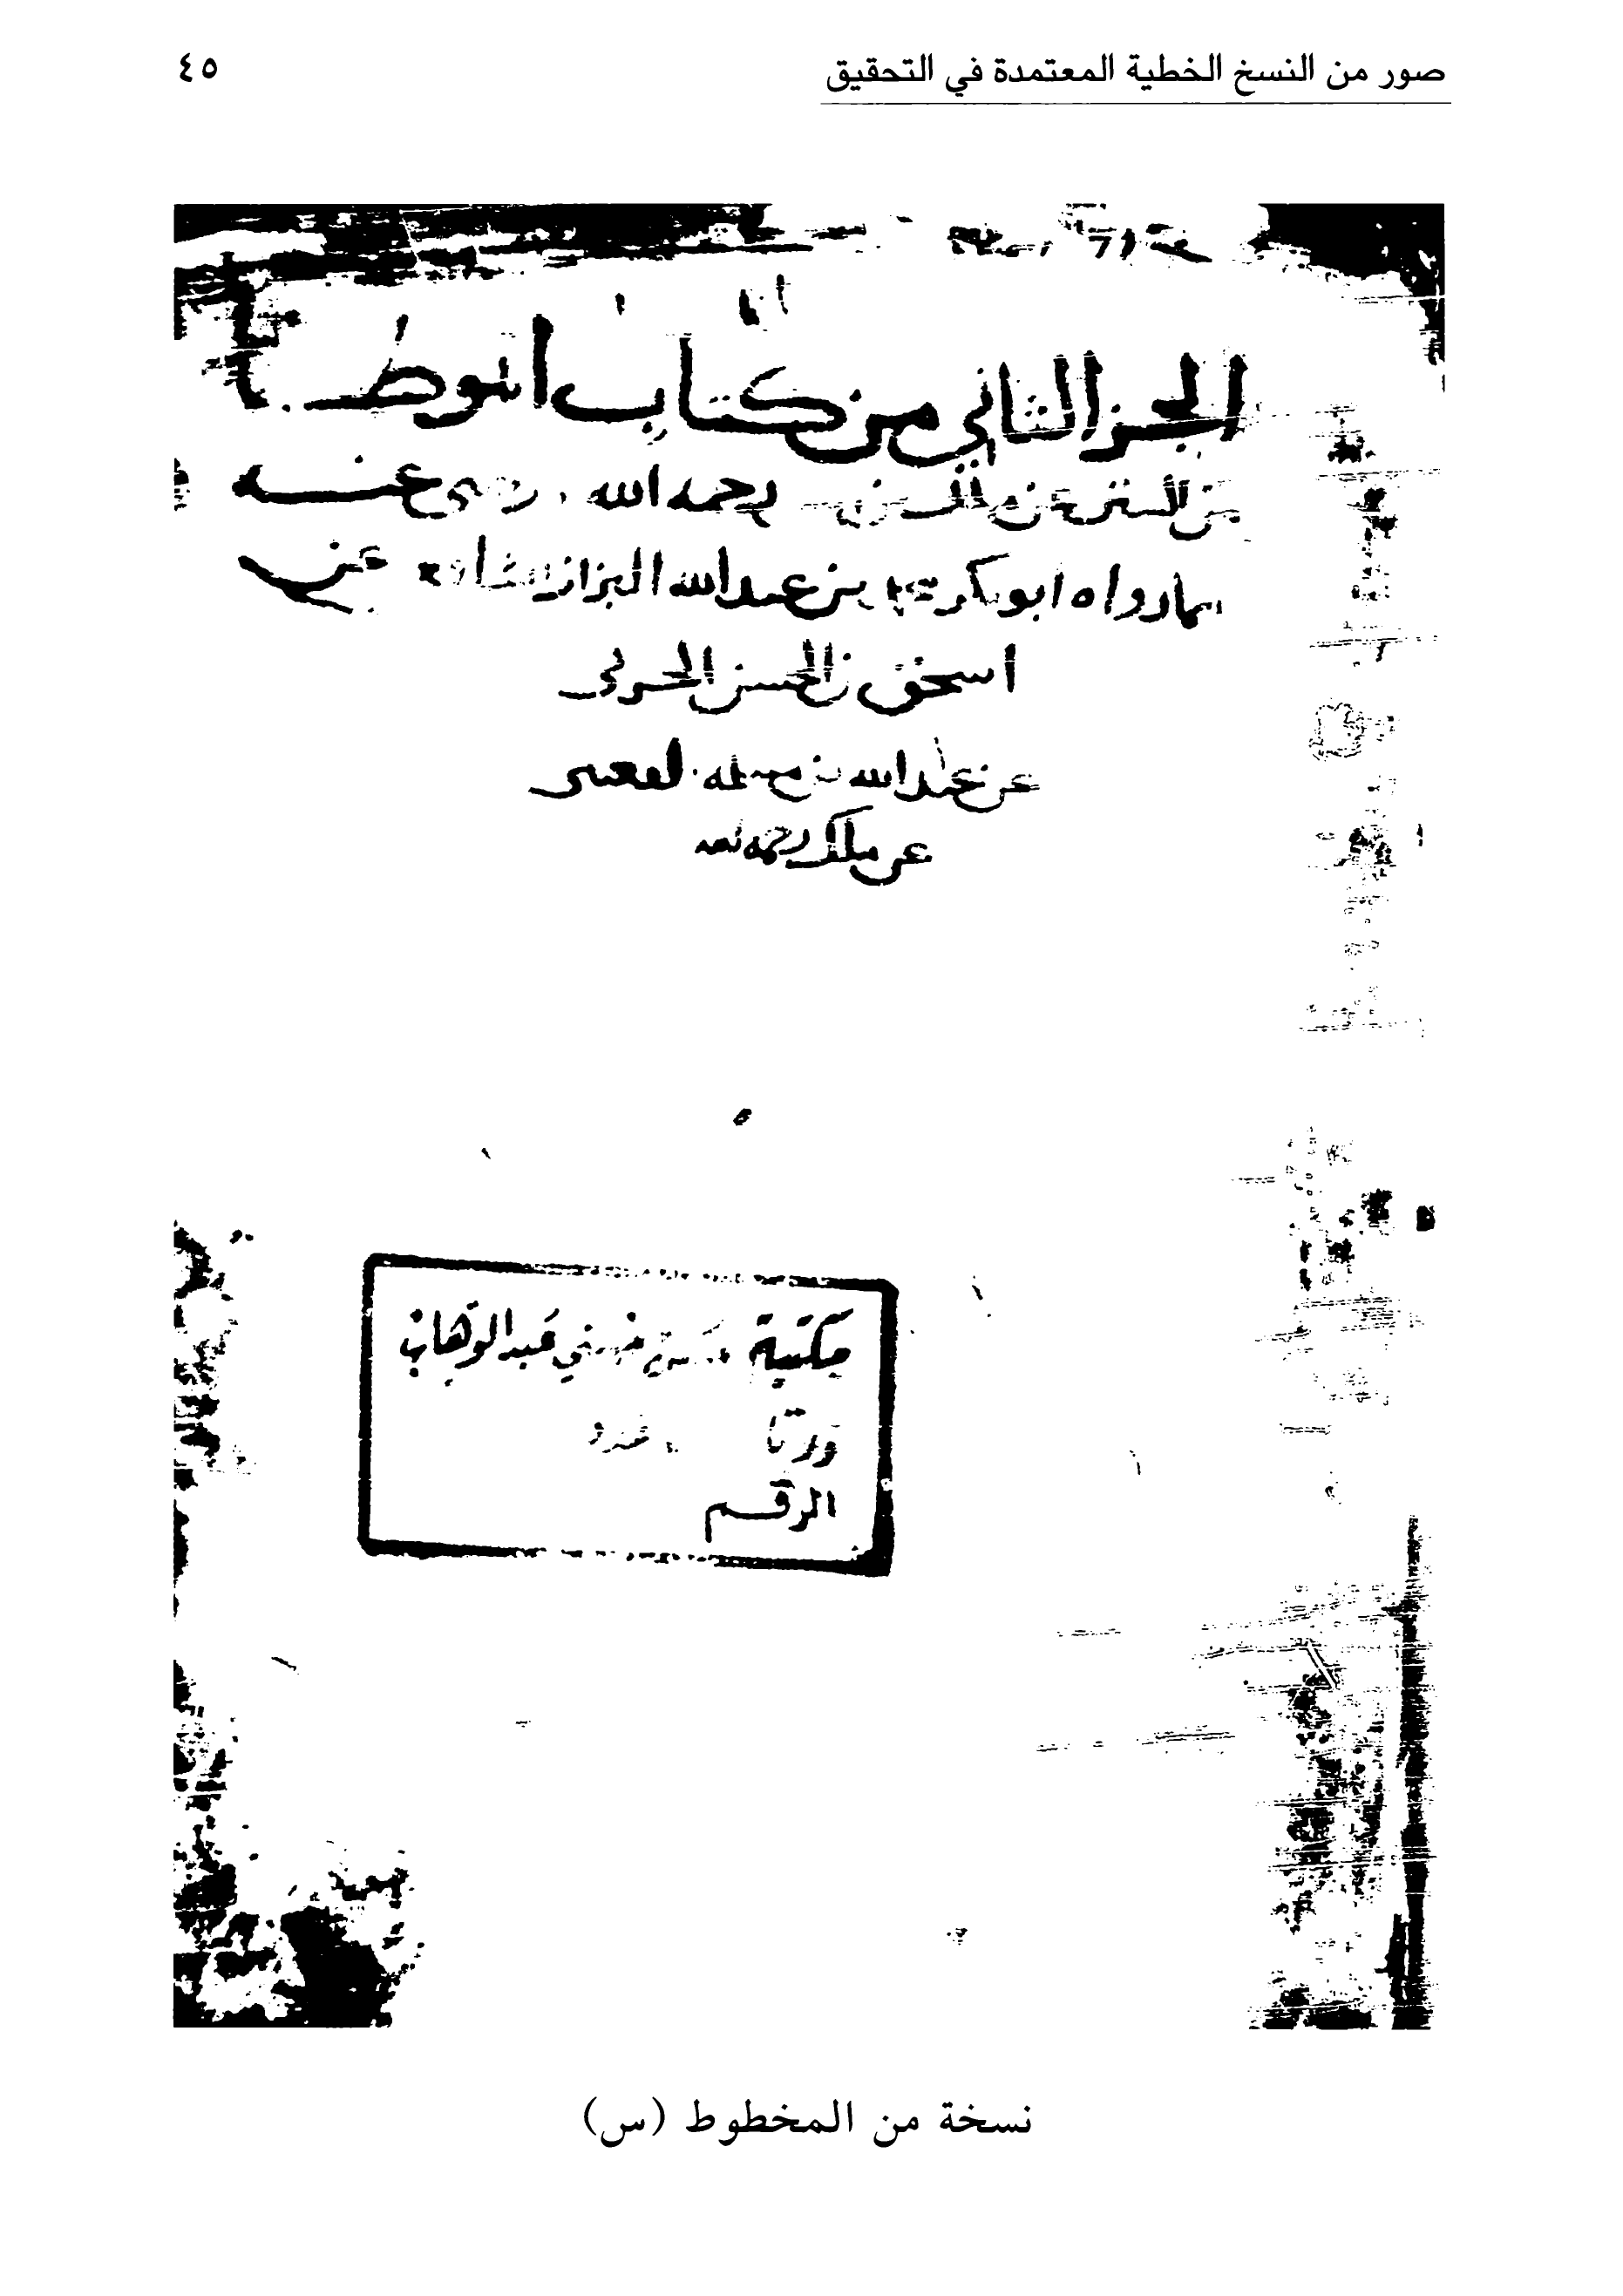 صور من النسخ الخطية المعتمدة في التحقيق
٤٥
الجز الثاني من كتاب الموطا
رحمه الله عنه
مما رواه ابو بكر بن عبد الله البزاز الشافعي عن
اسحق بن الحسن الحربي
عن عبد الله بن مسلمه القعنبي
عن ملك رحمه الله
مكتبة عبد الوهاب
الرقم
نسخة من المخطوط (س)